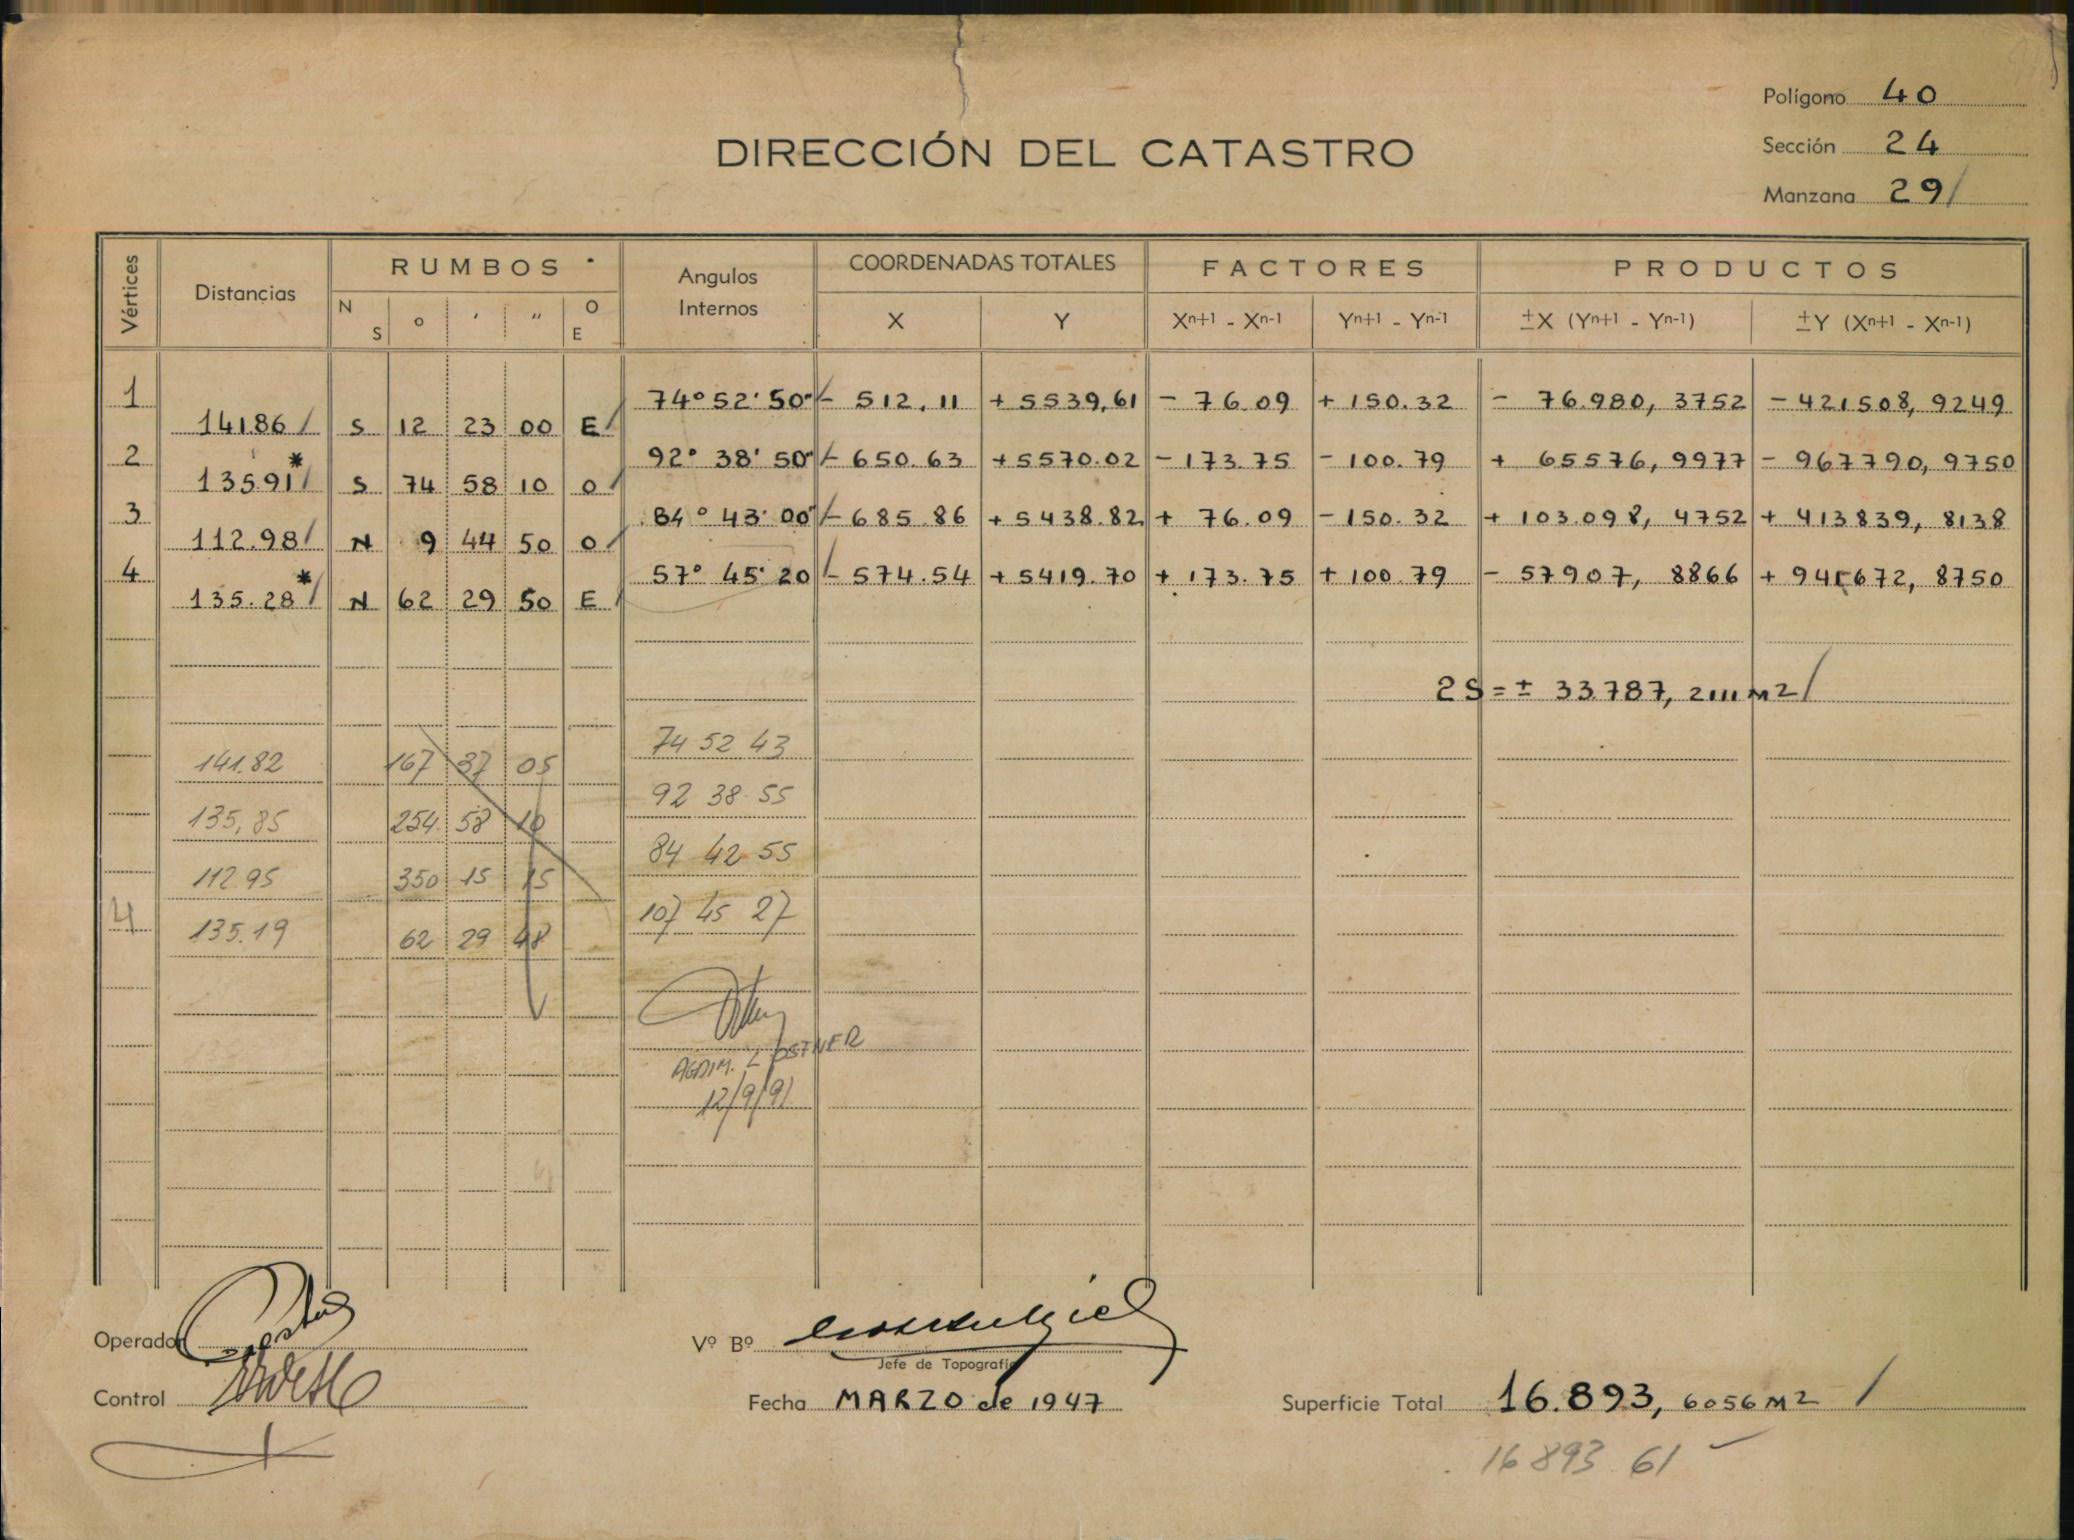 Polígono 40
DIRECCIÓN DEL CATASTRO
Sección 24
Manzana 29/
Vértices Distancias RUMBOS Angulos Internos COORDENADAS TOTALES FACTORES PRODUCTOS
N S o ' " O E X Y Xn+1 - Xn-1 Yn+1 - Yn-1 ±X (Yn+1 - Yn-1) ±Y (Xn+1 - Xn-1)
1 74° 52' 50" - 512,11 + 5539,61 - 76.09 + 150.32 - 76.980,3752 - 421508,9249
141.86/ S 12 23 00 E/
2 92° 38' 50" - 650.63 + 5570.02 - 173.75 - 100.79 + 65576,9977 - 967790,9750
135.91*/ S 74 58 10 O/
3 84° 43' 00" - 685.86 + 5438.82 + 76.09 - 150.32 + 103.098,4752 + 413839,8138
112.98/ N 9 44 50 O/
4 57° 45' 20 - 574.54 + 5419.70 + 173.75 + 100.79 - 57907,8866 + 941672,8750
135.28*/ N 62 29 50 E/
2S = ± 33.787,2111 M2/
74 52 43
141.82 167 37 05
92 38 55
135,85 254 58 10
84 42 55
112.95 350 15 15
107 45 27
4 135.19 62 29 48
AGRIM. L POSTNER
12/9/91
Operador
Vº Bº
Jefe de Topografía
Control
Fecha MARZO de 1947
Superficie Total 16.893,6056 M2 /
16893 61